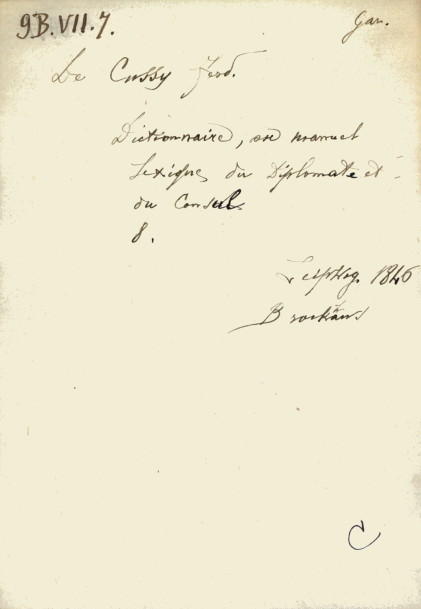 9B.VII.7.
Gar.
De Cussy Ferd.
Dictionnaire, ou manuel
Lexique du Diplomate et
du Consul.
8.
Leipzig. 1846
Brockhaus
C